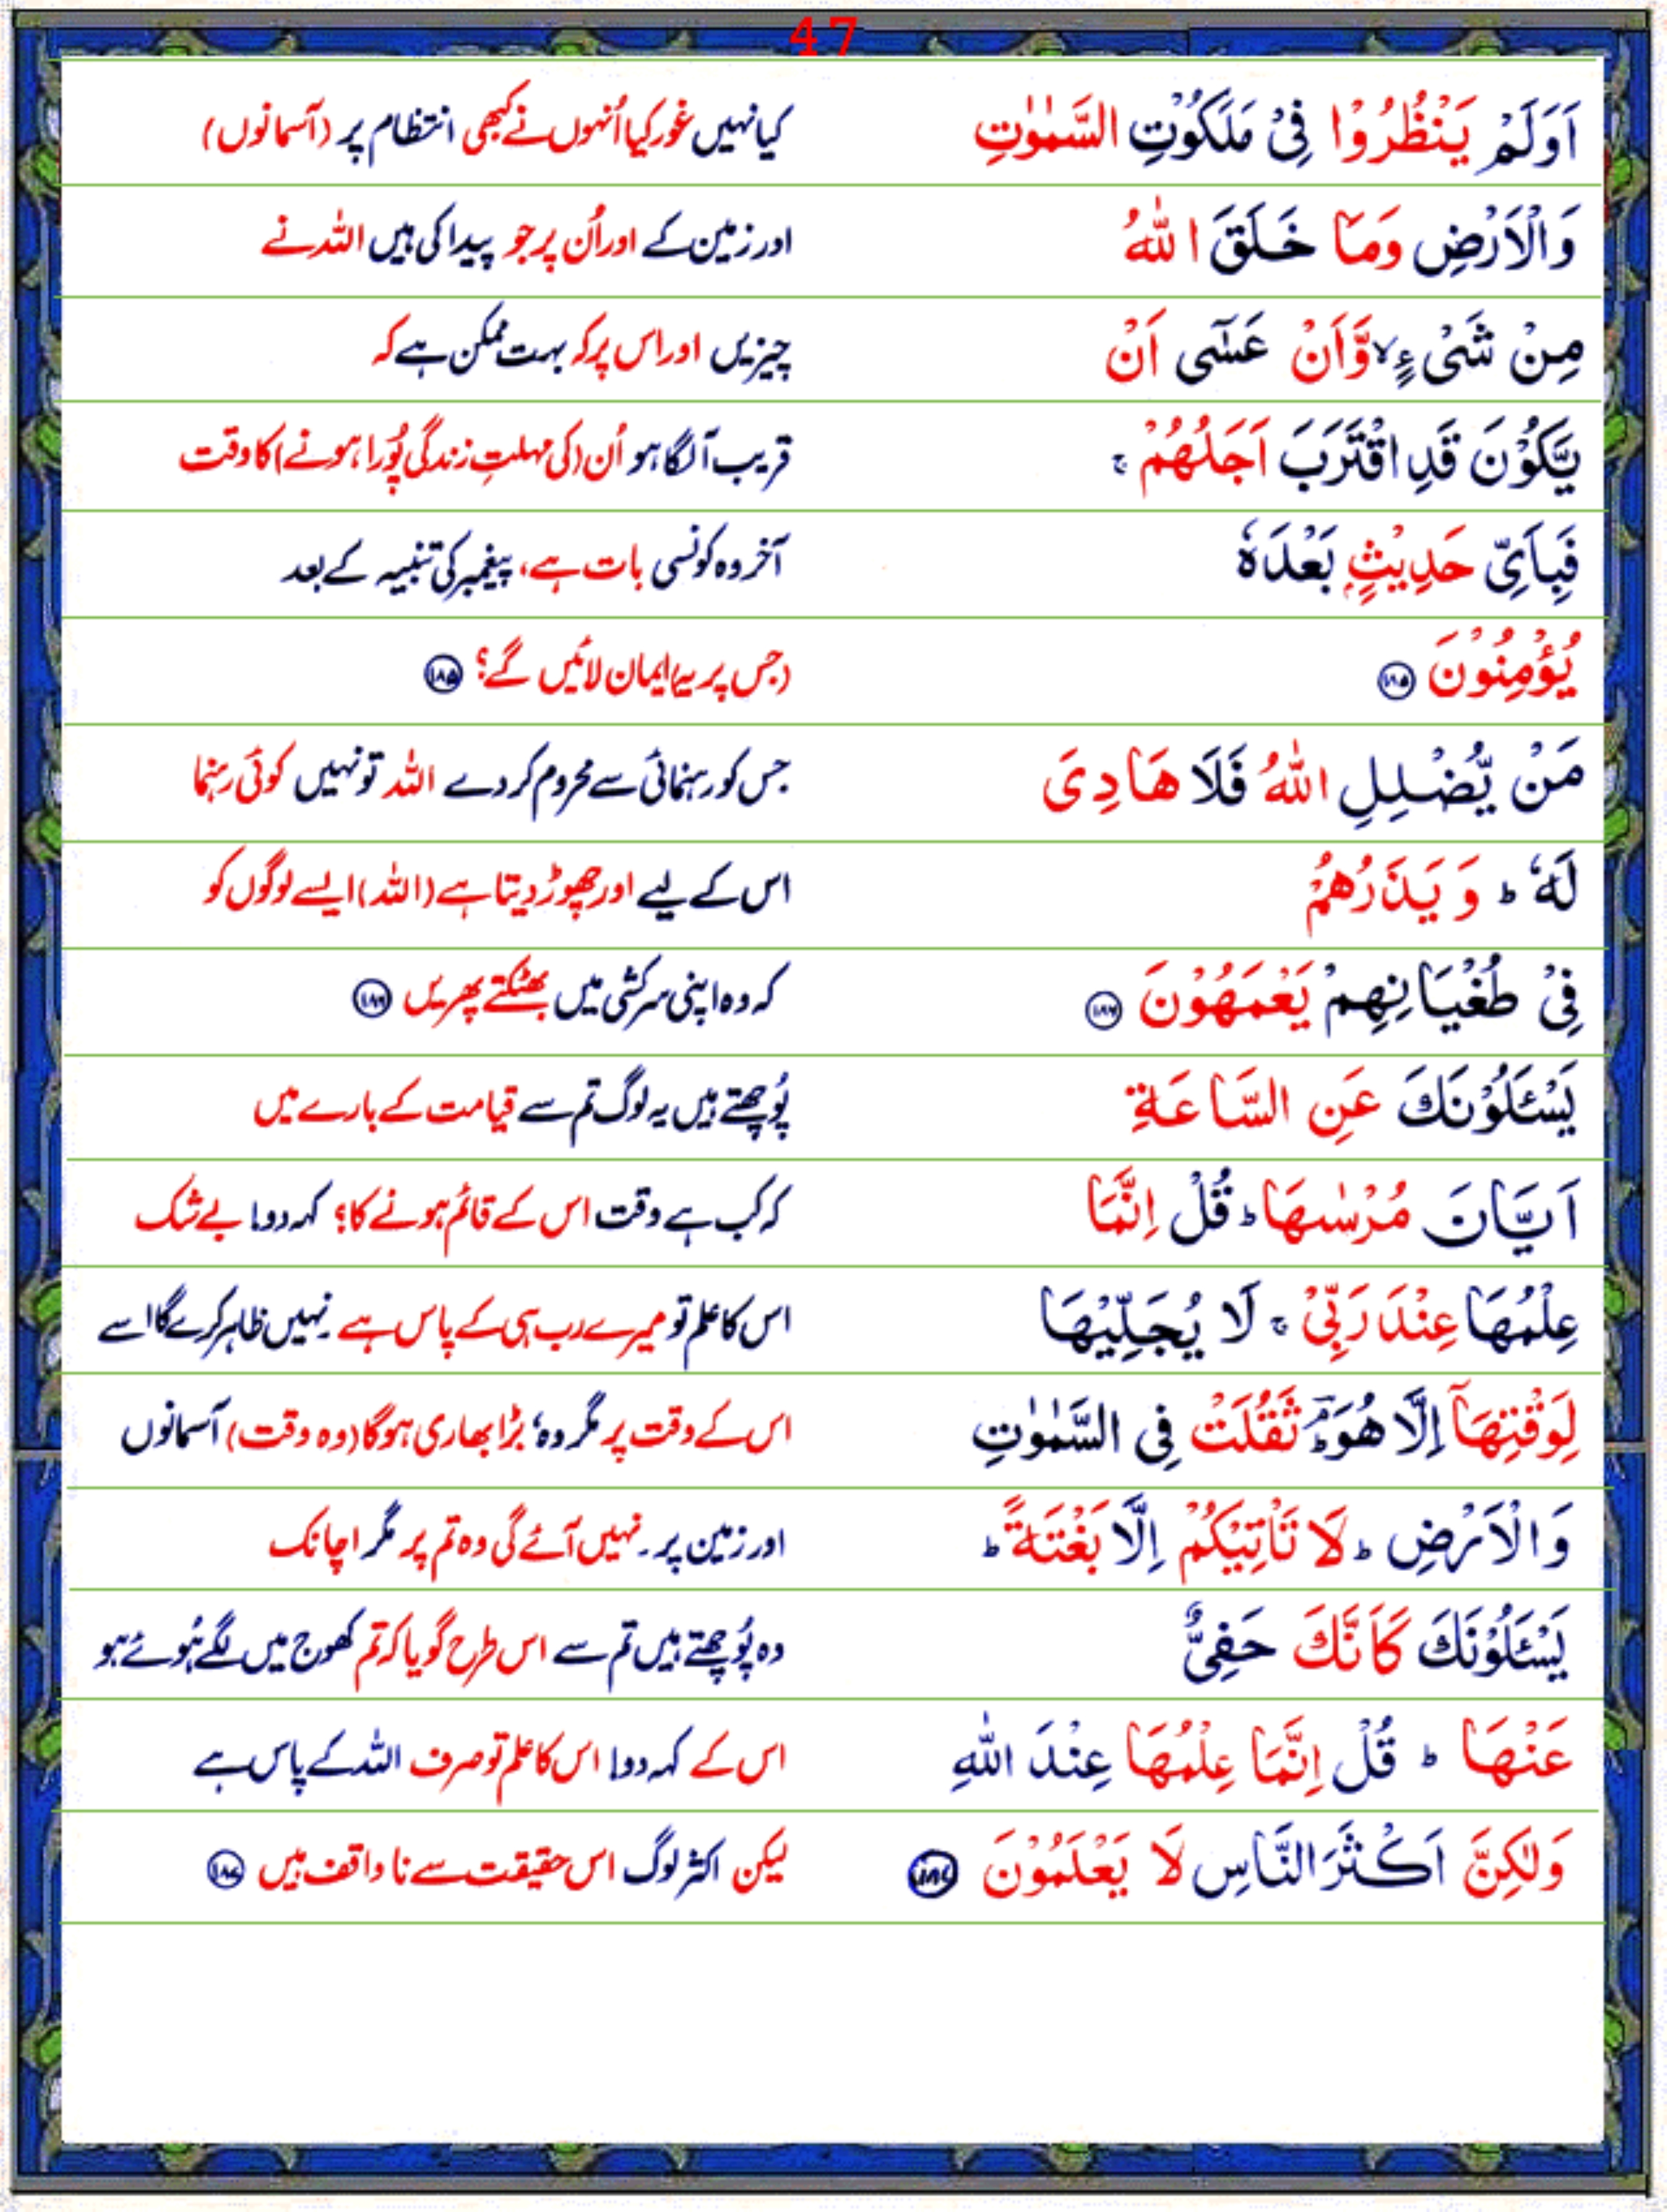 47
اَوَلَمْ يَنْظُرُوْا فِىْ مَلَكُوْتِ السَّمٰوٰتِ کیا نہیں غور کیا اُنہوں نے کبھی انتظام پر (آسمانوں)
وَالْاَرْضِ وَمَا خَلَقَ اللّٰهُ اور زمین کے اور اُن پر جو پیدا کی ہیں اللہ نے
مِنْ شَىْءٍ ۙ وَّاَنْ عَسٰٓى اَنْ چیزیں اور اس پر کہ بہت ممکن ہے کہ
يَّكُوْنَ قَدِ اقْتَرَبَ اَجَلُهُمْ ۚ قریب آ لگا ہو اُن (کی مہلتِ زندگی پُورا ہونے) کا وقت
فَبِاَىِّ حَدِيْثٍۭ بَعْدَهٗ آخر وہ کونسی بات ہے، پیغمبر کی تنبیہ کے بعد
يُؤْمِنُوْنَ ۝۱۸۵ (جس پر یہ) ایمان لائیں گے؟ ۝۱۸۵
مَنْ يُّضْلِلِ اللّٰهُ فَلَا هَادِىَ جس کو رہنمائی سے محروم کر دے اللہ تو نہیں کوئی رہنما
لَهٗ ؕ وَ يَذَرُهُمْ اس کے لیے اور چھوڑ دیتا ہے (اللہ) ایسے لوگوں کو
فِىْ طُغْيَانِهِمْ يَعْمَهُوْنَ ۝۱۸۶ کہ وہ اپنی سرکشی میں بھٹکتے پھریں ۝۱۸۶
يَسْـَٔلُوْنَكَ عَنِ السَّاعَةِ پُوچھتے ہیں یہ لوگ تم سے قیامت کے بارے میں
اَيَّانَ مُرْسٰىهَا ؕ قُلْ اِنَّمَا کہ کب ہے وقت اس کے قائم ہونے کا؟ کہہ دو! بے شک
عِلْمُهَا عِنْدَ رَبِّىْ ۚ لَا يُجَلِّيْهَا اس کا علم تو میرے رب ہی کے پاس ہے۔ نہیں ظاہر کرے گا اسے
لِوَقْتِهَاۤ اِلَّا هُوَ ؔؕ ثَقُلَتْ فِى السَّمٰوٰتِ اس کے وقت پر مگر وہ، بڑا بھاری ہو گا (وہ وقت) آسمانوں
وَالْاَرْضِ ؕ لَا تَاْتِيْكُمْ اِلَّا بَغْتَةً ؕ اور زمین پر۔ نہیں آئے گی وہ تم پر مگر اچانک
يَسْـَٔلُوْنَكَ كَاَنَّكَ حَفِىٌّ وہ پُوچھتے ہیں تم سے اس طرح گویا کہ تم کھوج میں لگے ہُوئے ہو
عَنْهَا ؕ قُلْ اِنَّمَا عِلْمُهَا عِنْدَ اللّٰهِ اس کے کہہ دو! اس کا علم تو صرف اللہ کے پاس ہے
وَلٰكِنَّ اَكْثَرَ النَّاسِ لَا يَعْلَمُوْنَ ۝۱۸۷ لیکن اکثر لوگ اس حقیقت سے نا واقف ہیں ۝۱۸۷